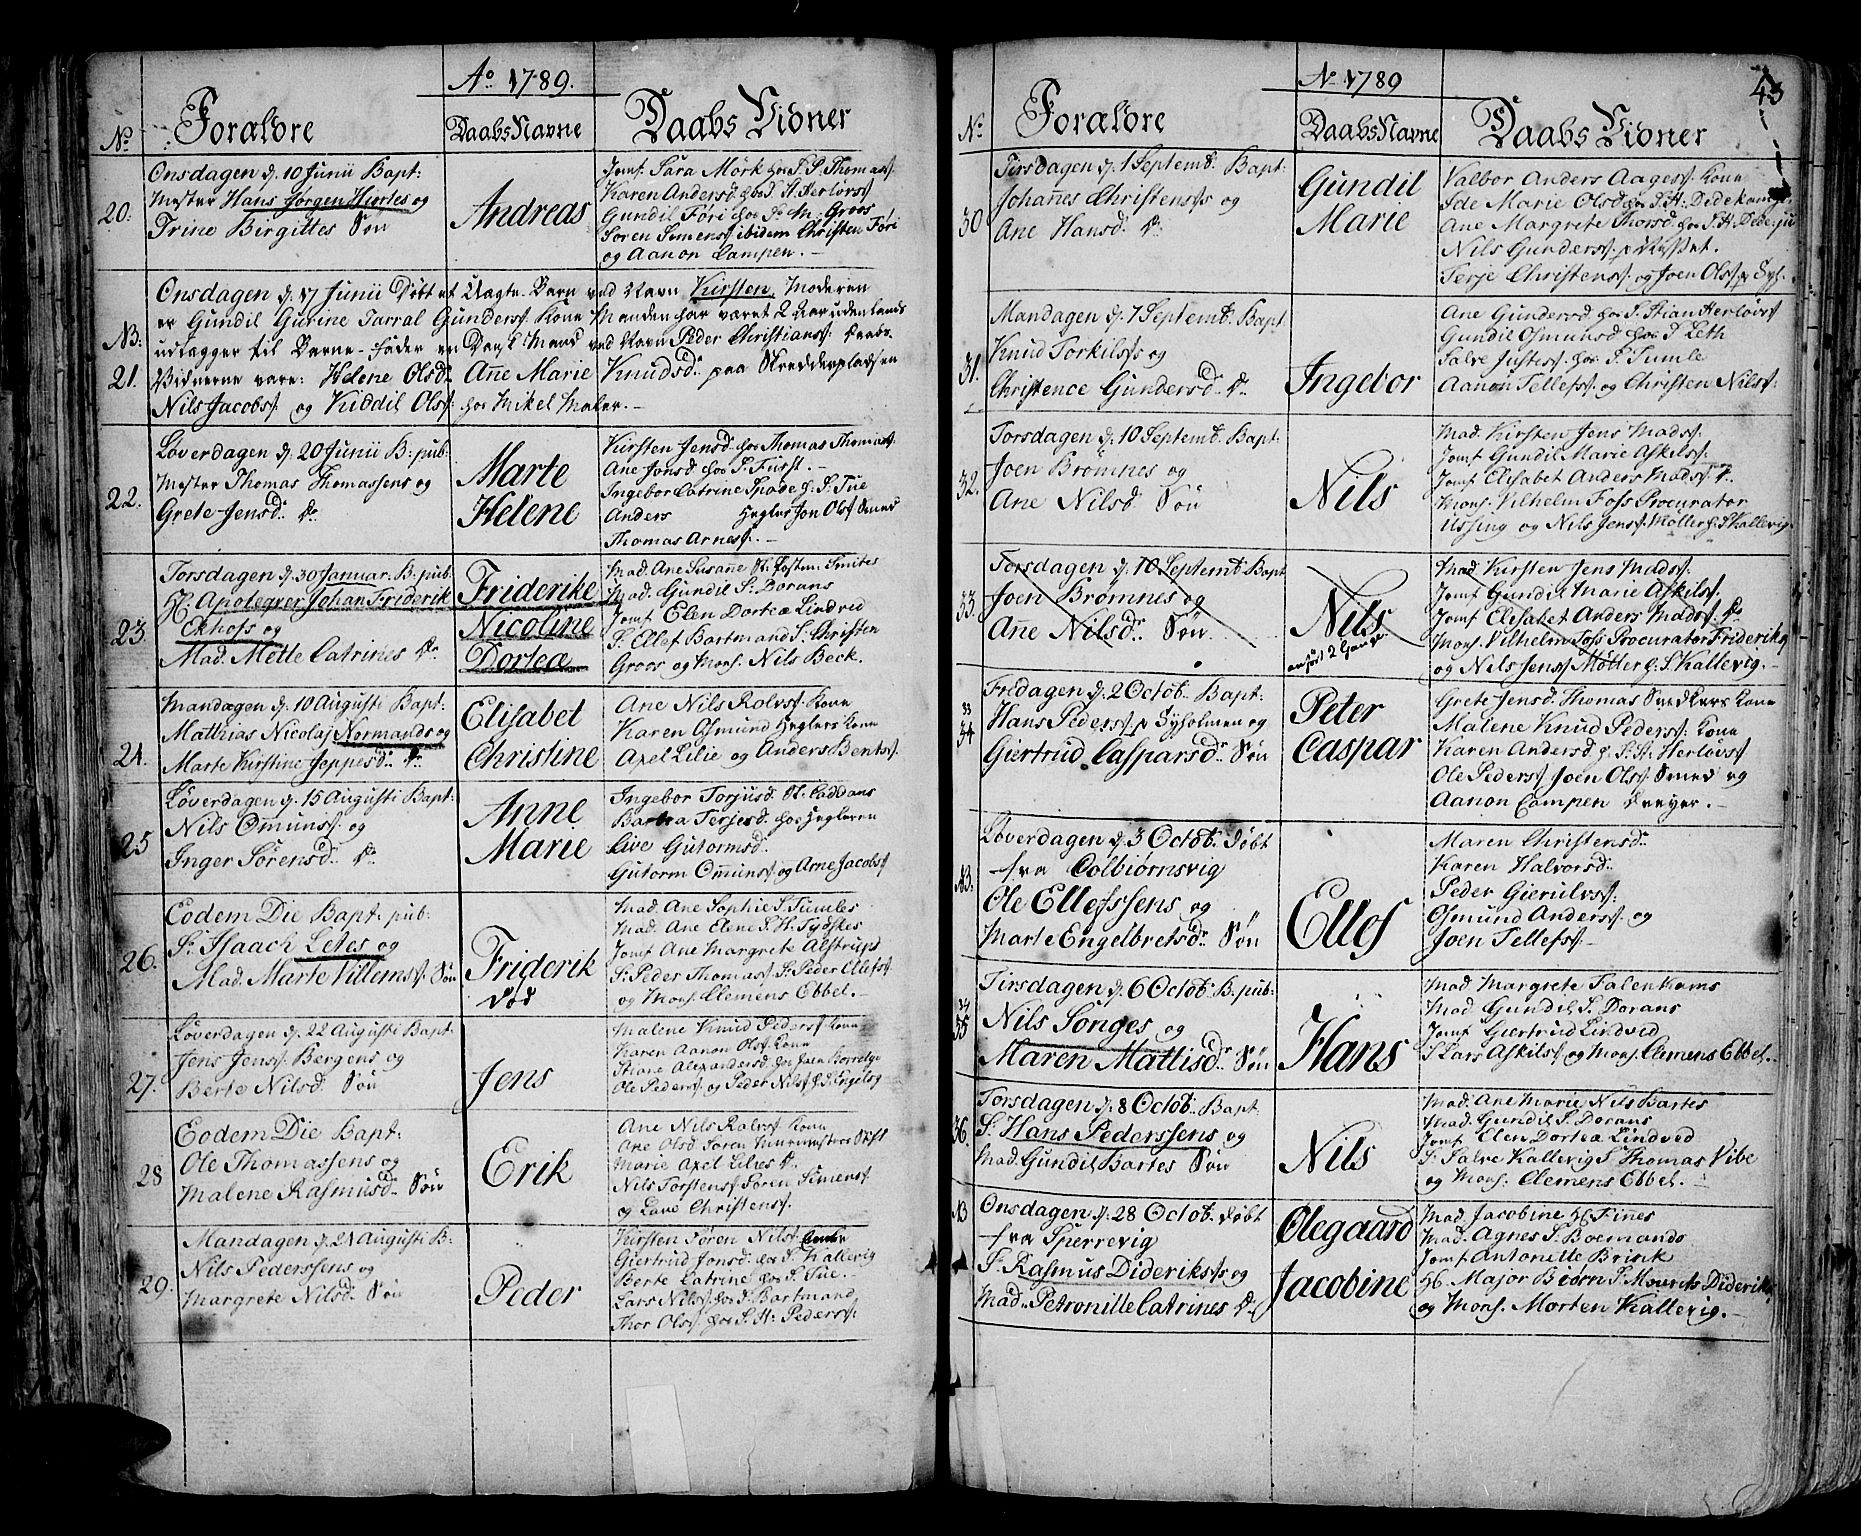 Ao 1789.
No Forældre DaabsNavne Daabs Vidner
20. Onsdagen d. 10 Junii Bapt:
Mester Hans Jørgen Hiortes og
Trine Birgittes Søn
Andreas
Jomf Sara Mörk hos S. Thomass
Karen Andersd hos S. H. Herløvss
Gundil Föri hos Sr. N. Groos
Sören Simensf ibidem Christen Föri
og Aanon Campen.
NB:
21. Onsdagen d. 17 Junii Döbt et Uægte Barn ved Navn Kirsten, Moderen
er Gundil Gurine Tarral Gundersf. Kone Manden har været 2 Aar udenlands
udlagger til Barne-fader en Dansk Mand ved Navn Peder Christiansf. Daabs
Vidnerne vare: Helene Olsd. Anne Marie Knudsd. paa Skredderpladsen
Nils Jacobsf. og Kiddil Olsf. hos Mikel Maler.
22. Løverdagen d. 20 Junii B: pub:
Mester Thomas Thomassens og
Grete Jensd. Dr.
Marte
Helene
Kirsten Jensd. hos Thomas Thomasf.
Ane Jonsd hos S. Fürst.
Ingebor Catrine Spade h. S. Tue
Anders Hegler Jon Olsf Smed
Thomas Arnesf.
23. Torsdagen d. 30 Januar. B. pub:
H. Apoteqver Johan Friderik
Ekhofs og
Mad. Mette Catrines Dr.
Friderike
Nicoline
Dorteæ
Mad. Ane Susane Sl. Postm: Smites
Mad. Gundil S. Dorans
Jomf Elen Dorteæ Lindved
S. Ellef Bartmand S. Christen
Groos og Mons. Nils Beck.
24. Mandagen d. 10 Augusti Bapt:
Matthias Nicolaj Normands og
Marte Kirstine Jeppesd. Dr.
Elisabet
Christine
Ane Nils Rolvsf. Kone
Karen Osmund Heglers Kone
Axel Lilie og Anders Bentsf.
25 Løverdagen d. 15 Augusti Bapt:
Nils Omunsf. og
Inger Sörensd. Dr.
Anne
Marie
Ingebor Torjusd. Sl. Laddans
Barbra Terjesd. hos Hegleren
Live Gutormsd.
Gutorm Omunsf og Arne Jacobsf
26. Eodem Die Bapt. pub:
Sr. Isaach Letes og
Mad. Marte Villemsf. Søn
Friderik
Död
Mad. Ane Sophie S. Tumles
Mad. Ane Elene S. H. Tydskes
Jomf Ane Margrete Alstrups
Sr. Peder Thomasf S. Peder Ellefsf
og Mons. Clemens Ebbel.
27. Løverdagen d. 22 Augusti Bapt
Jens Jensf. Bergens og
Berte Nilsd. Søn
Jens
Malene Knud Pedersf Kone
Karen Aanon Olsf Kone
Stiane Alexandersd hos Jan
Ole Pedersf og Peder Nilsf
28 Eodem Die Bapt:
Ole Thomassens og
Malene Rasmusd. Søn
Erik
Ane Nils Rolvsf Kone
Ane Olsd Sören Murmesters
Marie Axel Lilies Dr.
Nils Torstensf Sören Simensf
og Lave Christensf.
29. Mandagen d. 24 Augusti B.
Nils Pederssens og
Margrete Nilsd. Søn
Peder
Kirsten Sören Nilsf
Giertrud Jonsd. hos S. Kallevig
Berte Catrine hos S. Tue.
Lars Nilsf hos S. Bartmand
Thor Olsf hos S. H. Pedersf.
No 1789 43
No Forældre DaabsNavne Daabs Vidner
30 Tirsdagen d. 1 Septembr. Bapt
Johannes Christensf og
Ane Hansd. Dr.
Gundil
Marie
Valbor Anders Aagesf. Kone
Ide Marie Olsd hos S. H. Dedekamp
Ane Margrete Thorsd. hos S. H. Debesju
Nils Gundersf.
Terje Christensf. og Joen Olsf
31. Mandagen d. 7 Septembr. Bapt
Knud Torkilsf og
Christence Gundersd. Dr.
Ingebor
Ane Gundersd hos S. Stian Herløvsf
Gundil Osmunsd hos S. Leth
Salve Justesf. hos S. Tumle
Aanon Tellefsf. og Christen Nilsf.
32. Torsdagen d. 10 Septembr. Bapt:
Joen Brömnes og
Ane Nilsd Søn
Nils
Mad. Kirsten Jens Madsf.
Jomf Gundil Marie Askilsf
Jomf Elisabet Anders Madsf. Dr.
Mons. Vilhelm Foss Procurator
Ussing og Nils Jensf. Møller h. S. Kallevig.
33. Torsdagen d. 10 Septembr Bapt
Joen Brömnes og
Ane Nilsd. Søn
Nils
anfört 2 Gange
Mad Kirsten Jens Madsf.
Jomf Gundil Marie Askilsf.
Jomf Elisabet Anders Madsf. Dr.
Mons. Vilhelm Foss Procurator Friderik
og Nils Jensf Møller h. S. Kallevig.
33
34 Fredagen d. 2 Octob. Bapt:
Hans Pedersf. p Hyholmen og
Giertrud Caspersd. Søn
Peter
Caspar
Grete Jensd. Thomas Smed Kone
Malene Knud Pedersf. Kone
Karen Andersd h. S. H. Herløvsf
Ole Pedersf Joen Olsf Smed og
Aanon Campen Dreyer.
NB. Løverdagen d. 3 Octob. Döbt
fra Colbiørnsvig
Ole Ellefssens og
Marte Engelbretsd. Søn
Ellef
Maren Christensd.
Karen Halvorsd.
Peder Gierulvsf.
Osmund Andersf. og
Joen Tellefsf.
34
35 Tirsdagen d. 6 Octob. B. pub:
Nils Songes og
Maren Mattisd. Søn
Hans
Mad Margrete Falenkams
Mad Gundil S. Dorans
Jomf Giertrud Lindved
S. Lars Askilsf og Mons. Clemens Ebbel.
36. Torsdagen d. 8 Octob. Bapt:
S. Hans Pederssens og
Mad. Gundil Bartes Søn
Nils
Mad. Ane Marie Nils Bartes
Mad. Gundil S. Dorans
Jomf Elen Dorteæ Lindved
S. Salve Kallevig S. Thomas Vibe
og Mons. Clemens Ebbel.
NB Onsdagen d. 28 Octob. Döbt
fra Sperrevig
S. Rasmus Dideriksf og
Mad. Petronille Catrines Dr.
Ølegaard
Jacobine
Mad. Jacobine H. Fines
Mad. Agnes S. Boemands
Jomf Antonille Brink
H. Major Biörn S. Mourits Dideriks
og Mons. Morten Kallevig.